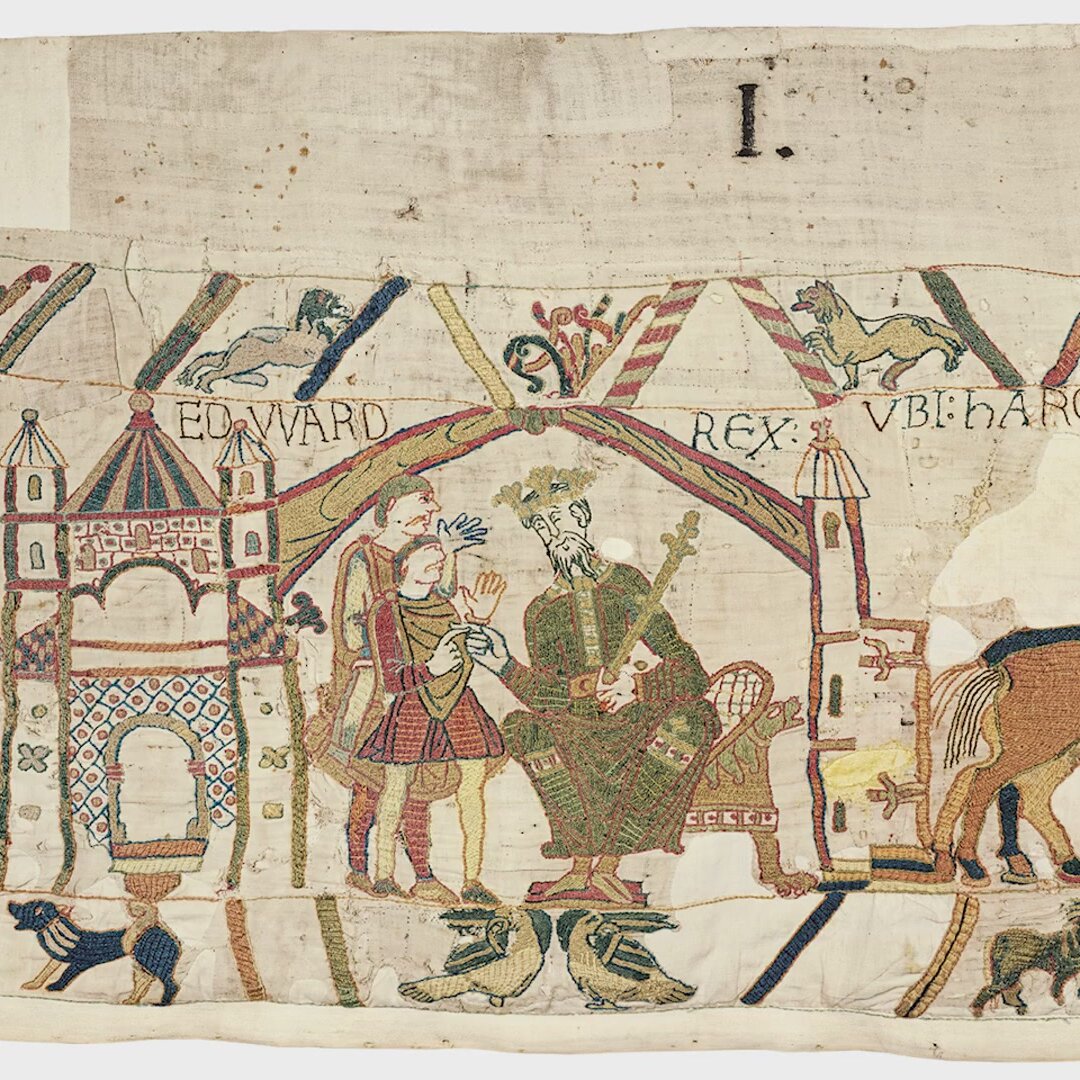 I.
EDVVARD REX: VBI: hARO